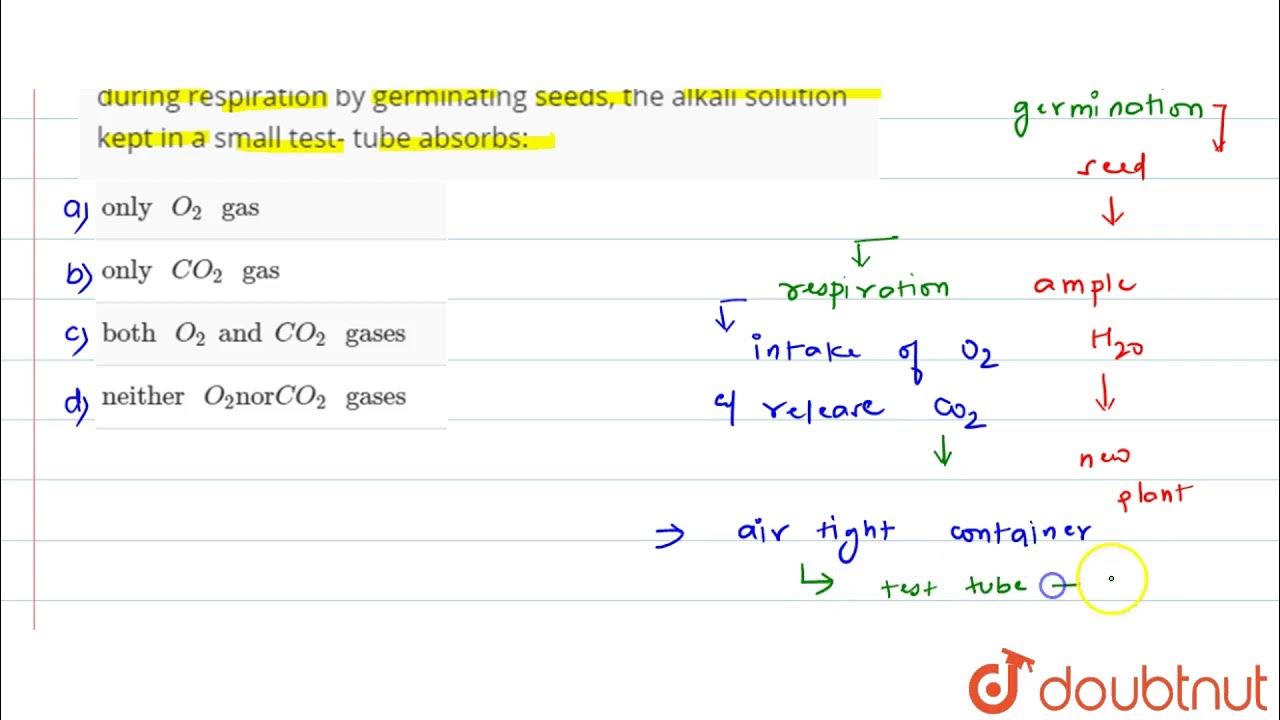 during respiration by germinating seeds, the alkali solution
kept in a small test- tube absorbs:
a) only O₂ gas
b) only CO₂ gas
c) both O₂ and CO₂ gases
d) neither O₂norCO₂ gases
germination
seed
↓
respiration
ample
intake of O₂
H₂O
↓
release CO₂
↓
new
plant
⇒ air tight container
↳ test tube
doubtnut